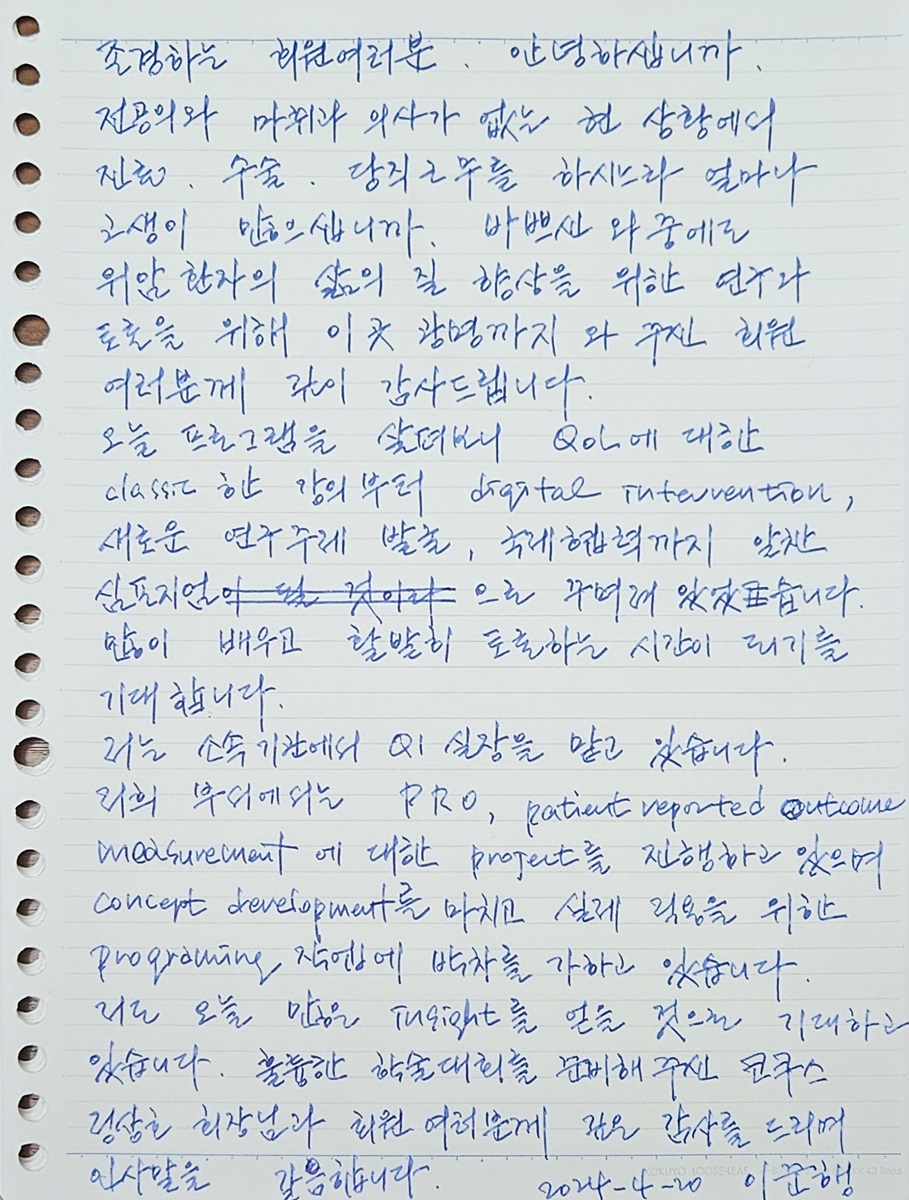 존경하는 회원여러분. 안녕하십니까.
전공의와 마취과 의사가 없는 현 상황에서
진료. 수술. 당직근무를 하시느라 얼마나
고생이 많으십니까. 바쁘신 와중에도
위암환자의 삶의 질 향상을 위한 연구과
토론을 위해 이곳 광명까지 와 주신 회원
여러분께 깊이 감사드립니다.
오늘 프로그램을 살펴보니 QoL에 대한
classic한 강의부터 digital intervention,
새로운 연구주제 발굴, 국제협력까지 알찬
심포지엄으로 꾸며져 있습니다.
많이 배우고 활발히 토론하는 시간이 되기를
기대합니다.
저는 소속기관에서 QI실장을 맡고 있습니다.
저희 부서에서는 PRO, patient reported outcome
measurement에 대한 project를 진행하고 있으며
concept development를 마치고 실제 적용을 위한
programing 작업에 박차를 가하고 있습니다.
저도 오늘 많은 insight를 얻을 것으로 기대하고
있습니다. 훌륭한 학술대회를 준비해주신 코쿠스
정상호 회장님과 회원 여러분께 깊은 감사를 드리며
인사말을 갈음합니다.
2024-4-20 이준행
KOKUYO LOOSE-LEAF